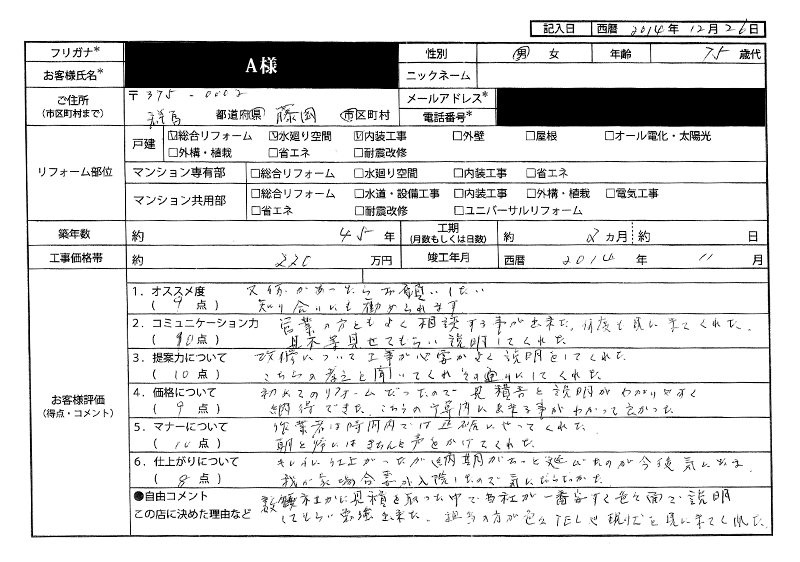 記入日 西暦 2014年 12月 26日
フリガナ* A様 性別 男 女 年齢 75歳代
お客様氏名* ニックネーム
ご住所 (市区町村まで) 〒375-0002 メールアドレス*
群馬 都道府県 藤岡 市区町村 電話番号*
リフォーム部位
戸建 ☑総合リフォーム ☑水廻り空間 ☑内装工事 □外壁 □屋根 □オール電化・太陽光
□外構・植栽 □省エネ □耐震改修
マンション専有部 □総合リフォーム □水廻り空間 □内装工事 □省エネ
マンション共用部 □総合リフォーム □水道・設備工事 □内装工事 □外構・植栽 □電気工事
□省エネ □耐震改修 □ユニバーサルリフォーム
築年数 約 45年 工期 (月数もしくは日数) 約 2ヵ月 約 日
工事価格帯 約 220万円 竣工年月 西暦 2014年 11月
お客様評価 (得点・コメント)
1. オススメ度 又何かあったらお願いしたい
(9点) 知り合いにも勧められます
2. コミュニケーション力 営業の方ともよく相談する事が出来た。何度も見に来てくれた。
(90点) 見本等見せてもらい説明してくれた
3. 提案力について 改修について工事が心事がよく説明をしてくれた
(10点) こちらの考えを聞いてくれその通りにしてくれた
4. 価格について 初めてのリフォームだったので見積書と説明がわかりやすく
(9点) 納得できた。こちらの予算内に出来る事がわかって良かった
5. マナーについて 作業者は時間内では正確にやってくれた。
(10点) 朝と帰りにはきちんと声をかけてくれた。
6. 仕上がりについて きれいに仕上がったが納期がちょっと延びたのが今後気になる
(8点) 我が家の場合妻が入院したので気にならなかった
●自由コメント 数社に見積を取った中で当社が一番安く色々面で説明
この店に決めた理由など してもらい勉強出来た。担当の方が色々TELや現状を見に来てくれた。